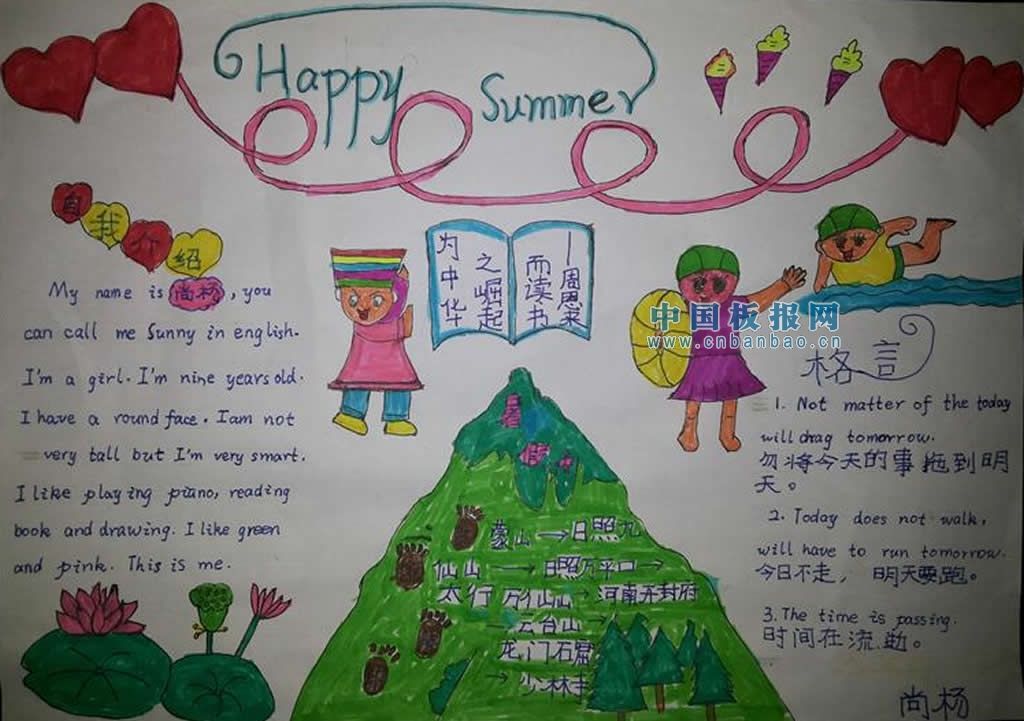 Happy Summer
自我介绍
My name is 尚杨, you
can call me Sunny in english.
I'm a girl. I'm nine years old.
I have a round face. I am not
very tall but I'm very smart.
I like playing piano, reading
book and drawing. I like green
and pink. This is me.
为中华
之崛起
而读书
—周恩来
中国板报网
www.cnbanbao.cn
格言
1. Not matter of the today
will drag tomorrow.
勿将今天的事拖到明
天。
2. Today does not walk,
will have to run tomorrow.
今日不走, 明天要跑。
3. The time is passing.
时间在流逝。
暑假
蒙山→日照九
仙山→日照万平口→
太行万仙山→河南开封府
→云台山→
龙门石窟
→少林寺
尚杨